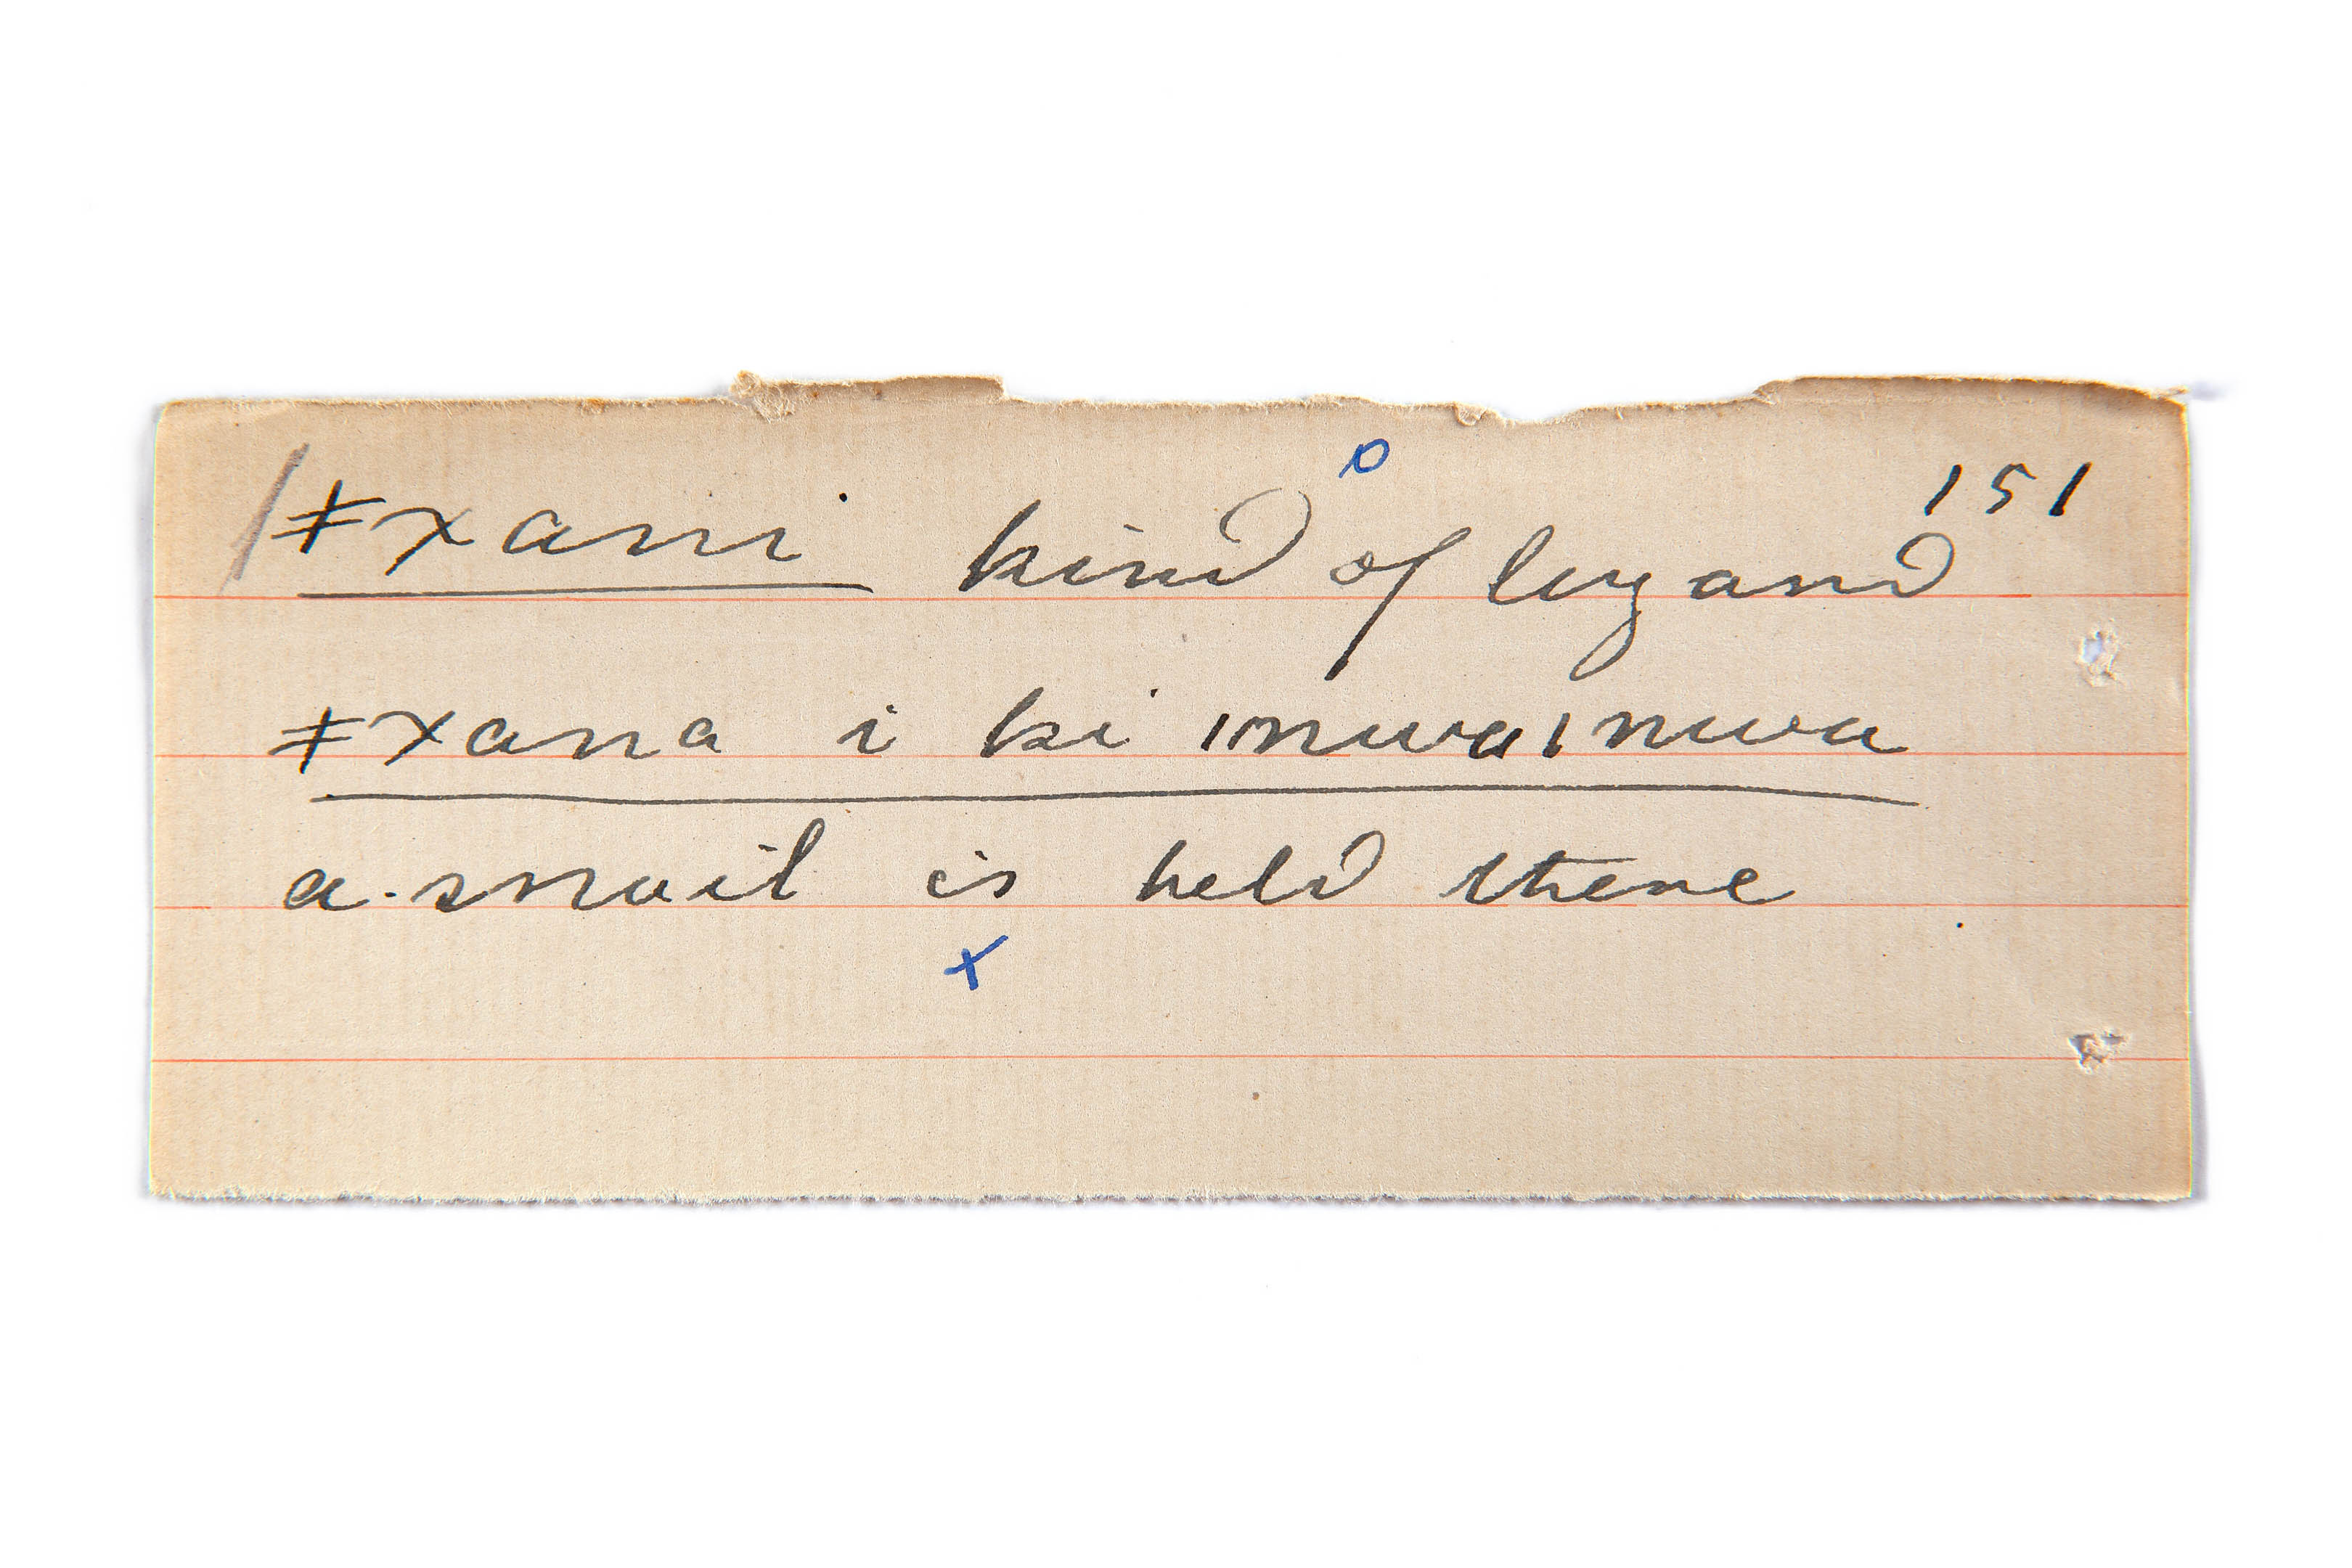 151
ǂxani kind of lizard
ǂxana i ki ǀnwaǀnwa
a snail is held there